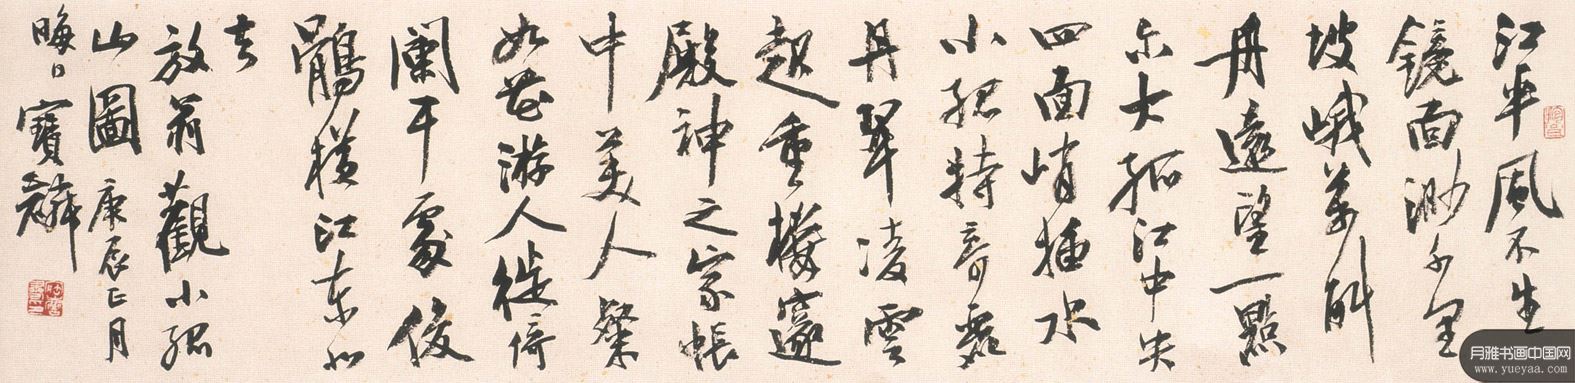 江平風不生
鏡面渺千里
坡峨萬斛
舟遠望一點
尔大孤江中央
四面峭插水
小孤特奇麗
丹翠凌雲
起重樓邃
殿神之家帳
中美人粲
如花游人徙倚
闌干處俊
鶻橫江東北
去
放翁觀小孤
山圖 庚辰正月
晦日寶麟
月雅书画中国网
www.yueyaa.com